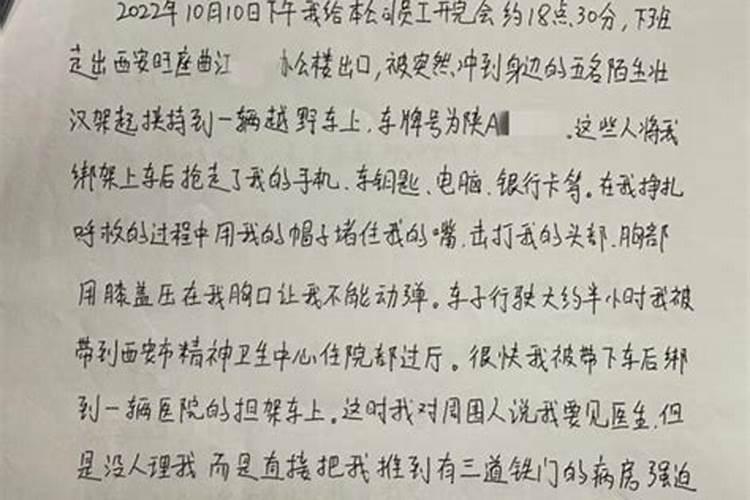 2022年10月10日下午我给本公司员工开完会约18点30分,下班
走出西安旺座曲江 办公楼出口,被突然冲到身边的五名陌生壮
汉架起挟持到一辆越野车上,车牌号为陕A 。这些人将我
绑架上车后抢走了我的手机、车钥匙、电脑、银行卡等。在我挣扎
呼救的过程中用我的帽子堵住我的嘴,击打我的头部、胸部
用膝盖压在我胸口让我不能动弹。车子行驶大约半小时我被
带到西安市精神卫生中心住院部过厅。很快我被带下车后绑
到一辆医院的担架车上。这时我对周围人说我要见医生,但
是没人理我而是直接把我推到有三道铁门的病房强迫